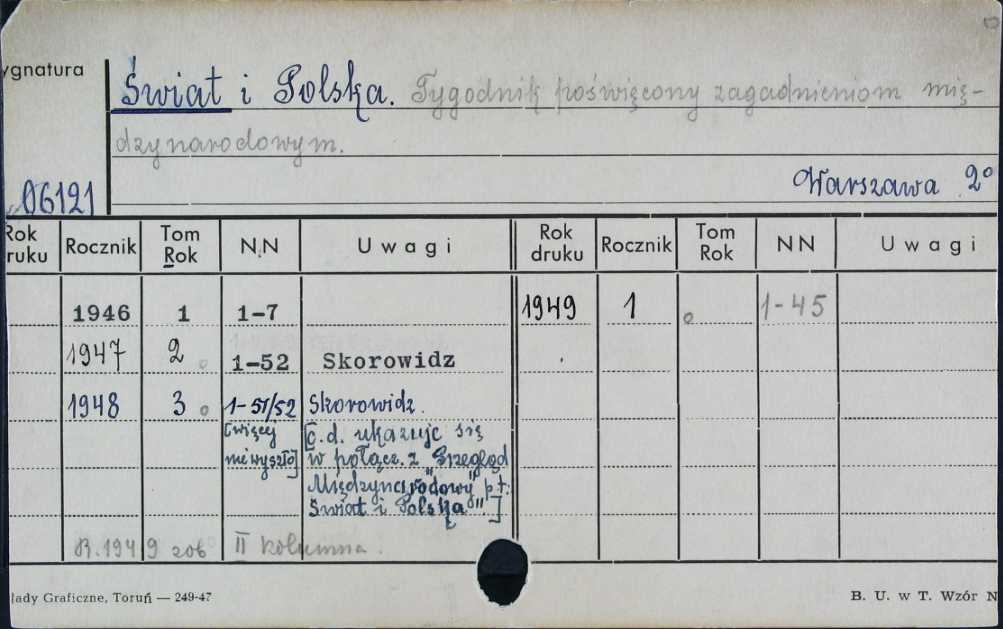 ygnatura
Świat i Polska. Tygodnik poświęcony zagadnieniom mię-
dzynarodowym.
06121
Warszawa 2°
Rok
ruku Rocznik Tom
Rok N.N Uwagi Rok
druku Rocznik Tom
Rok NN Uwagi
1946 1 1-7 1949 1 1-45
1947 2 1-52 Skorowidz
1948 3 1-51/52 Skorowidz.
[więcej
nie wyszło]
[c.d. ukazuje się
w połącz. z "Przegląd
Międzynarodowy" p.t:
Świat i Polska"]
R. 1949 zob II kolumna.
łady Graficzne, Toruń — 249-47
B. U. w T. Wzór N